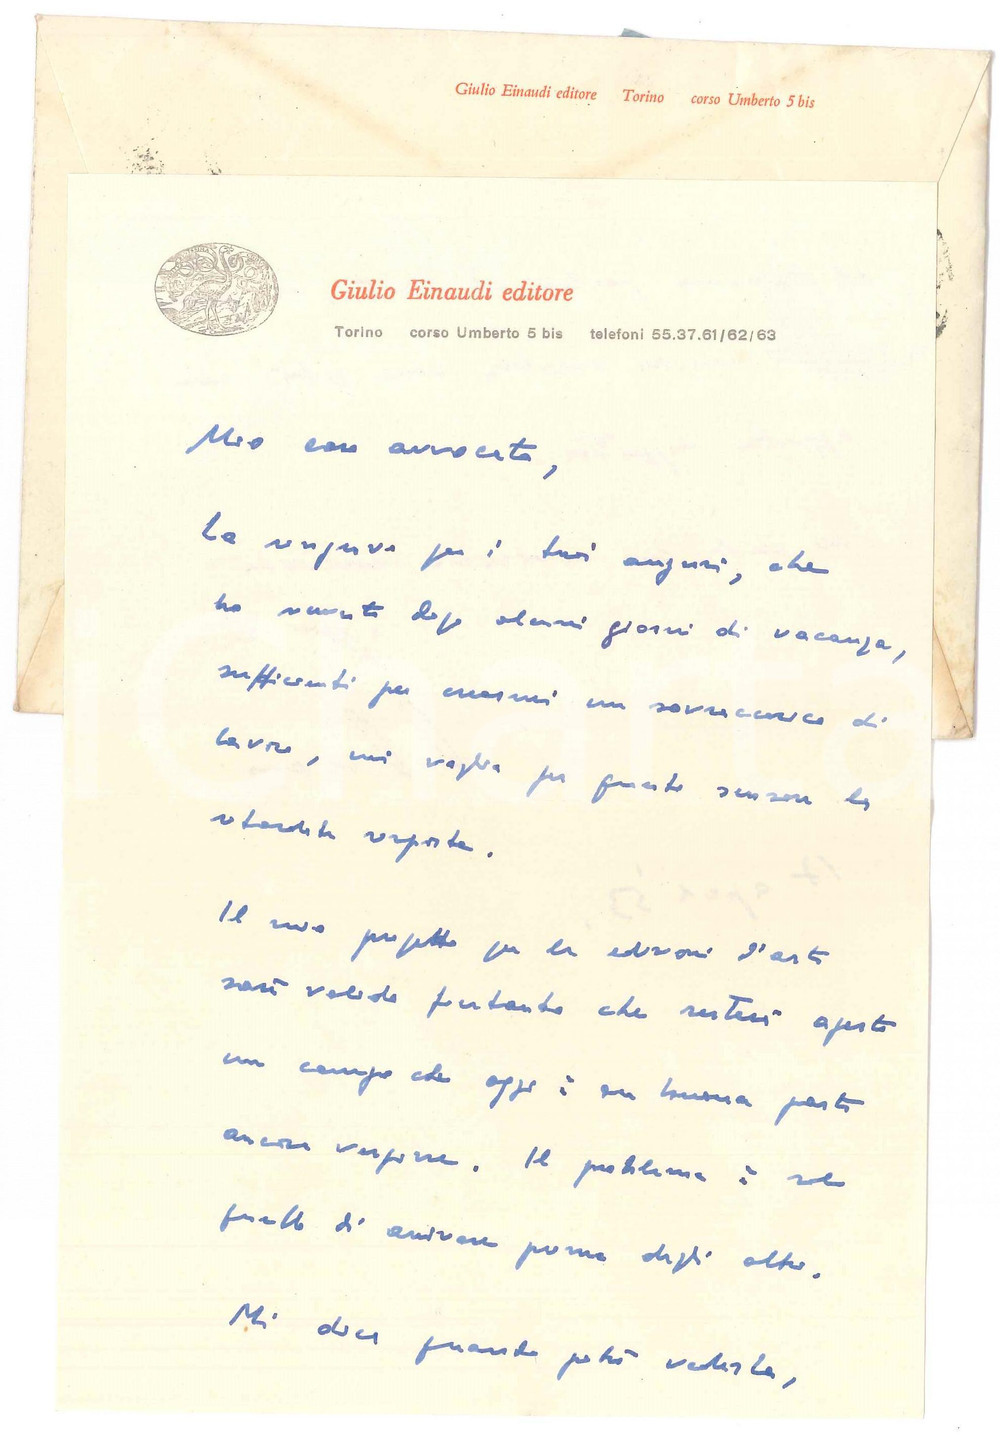 Giulio Einaudi editore Torino corso Umberto 5 bis
Giulio Einaudi editore
Torino corso Umberto 5 bis telefoni 55.37.61/62/63
Mio caro avvocato,
La ringrazio per i Suoi auguri, che
ho avuti dopo alcuni giorni di vacanza,
sufficienti per crearmi un sovraccarico di
lavoro, mi voglia per questo scusare la
ritardata risposta.
Il mio progetto per le edizioni d'arte
sarà valido fintanto che resterà aperto
un campo che oggi è in buona parte
ancora vergine. Il problema è solo
quello di arrivare prima degli altri.
Mi dica quando potrò vederla,